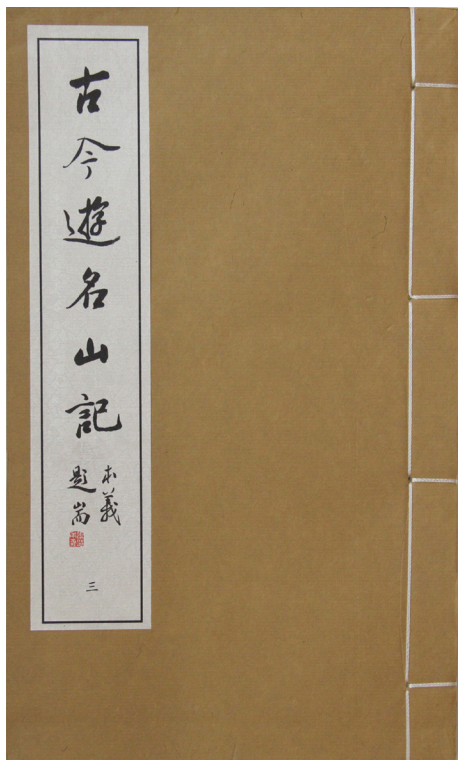 古今遊名山記
本義
題耑
三